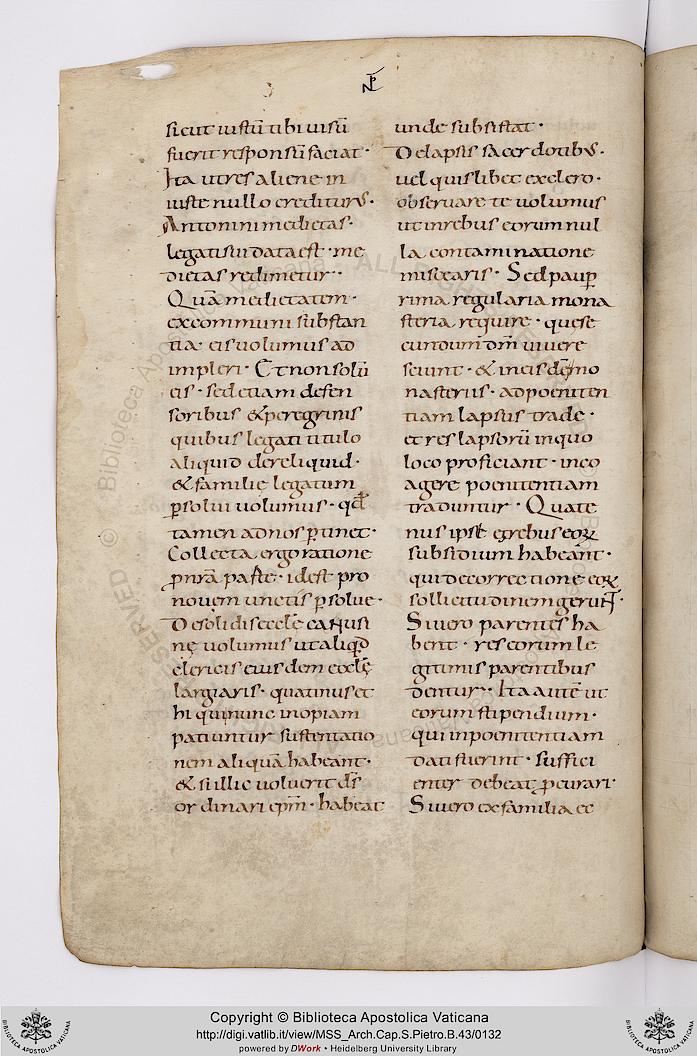 sicut iustū tibi uisū
fuerit responsū faciat·
Ita ut res aliene in
iuste nullo creditur&s·
Antonini medietas·
legatisui data est· me
dietas redimetur··
Quā medietatem·
ex communi substan
tia· eis uolumus ad
impleri· Et non solū
eis· sed etiam defen
soribus & peregrinis
quibus legati titulo
aliquid dereliquid·
& familię legatum
ꝑsolui uolumus· qđ
tamen ad nos ꝑtinet·
Collecta ergo ratione
ꝓ nr̄a parte· idest pro
nouem unciis ꝑsolue·
De solidis eccle canusi
nę uolumus ut aliqđ
clericis eiusdem ecclę
largiaris· quatinus et
hi qui nunc inopiam
patiuntur sustentatio
nem aliquā habeant·
& si illic uoluerit dš
ordinari epm̄· habeat
unde subsistat·
De lapsis sacerdotibus·
uel quislibet ex clero·
obseruare te uolumus
ut in rebus eorum nul
la contaminatione
miscearis· Sed pauꝑ
rima regularia mona
steria require· quese
cundum dm̄ uiuere
sciunt· & in eis dēmo
nasteriis· ad poeniten
tiam lapsus trade·
et res lapsorū in quo
loco proficiant· in eo
agere poenitentiam
traduntur· Quate
nus ipsi ex rebus eoꝝ
subsidium habeant·
qui de correctione eoꝝ
sollicitudinem gerunt·
Si uero parentes ha
bent· res eorum le
gitimis parentibus
dentur· Ita autē ut
eorum stipendium·
qui in poenitentiam
dati fuerint· suffici
enter debeat ꝓcurari·
Si uero ex familia ec
Copyright © Biblioteca Apostolica Vaticana
http://digi.vatlib.it/view/MSS_Arch.Cap.S.Pietro.B.43/0132
powered by DWork • Heidelberg University Library